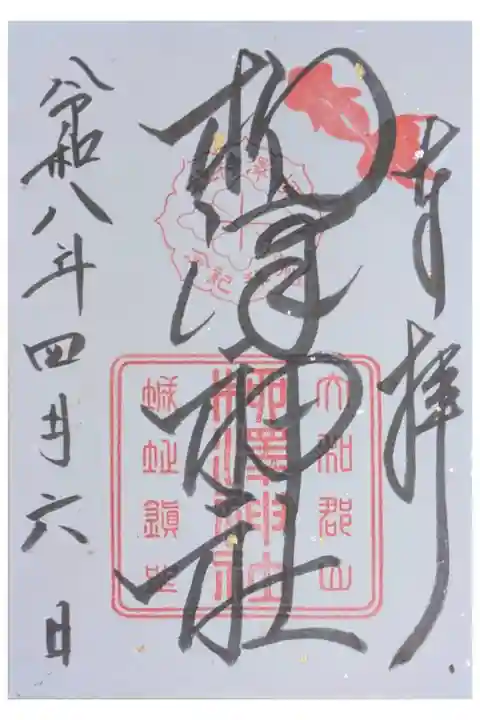 奉拝
柳澤神社
令和八年四月六日
大和郡山
柳澤神社
城址鎮坐